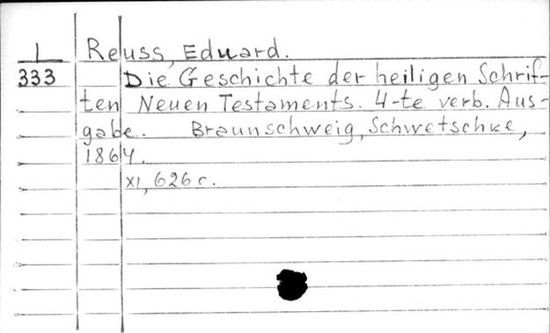 I Reuss, Eduard.
333 Die Geschichte der heiligen Schrif-
ten Neuen Testaments. 4-te verb. Aus-
gabe. Braunschweig, Schwetschke,
1864.
XI, 626 c.